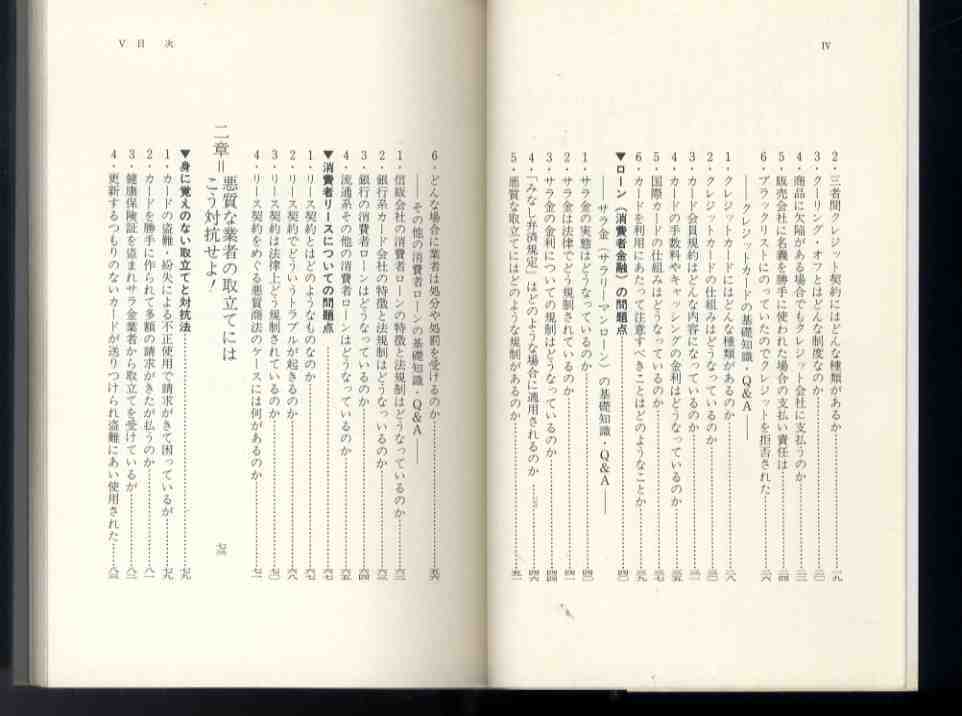 IV
2・三者間クレジット契約にはどんな種類があるか……一九
3・クーリング・オフとはどんな制度なのか……二〇
4・商品に欠陥がある場合でもクレジット会社に支払うのか……二三
5・販売会社に名義を勝手に使われた場合の支払い責任は……二四
6・ブラックリストにのっていたのでクレジットを拒否された……二六
――クレジットカードの基礎知識・Q&A――
1・クレジットカードにはどんな種類があるのか……二八
2・クレジットカードの仕組みはどうなっているのか……三〇
3・カード会員規約はどんな内容になっているのか……三一
4・カードの手数料やキャッシングの金利はどうなっているのか……三五
5・国際カードの仕組みはどうなっているのか……三七
6・カードを利用にあたって注意すべきことはどのようなことか……三九
▼ローン(消費者金融)の問題点……四〇
――サラ金(サラリーマンローン)の基礎知識・Q&A――
1・サラ金の実態はどうなっているのか……四〇
2・サラ金は法律でどう規制されているのか……四一
3・サラ金の金利についての規制はどうなっているのか……四四
4・「みなし弁済規定」はどのような場合に適用されるのか……四六
5・悪質な取立てにはどのような規制があるのか……五一
V 目 次
6・どんな場合に業者は処分や処罰を受けるのか……五六
――その他の消費者ローンの基礎知識・Q&A――
1・信販会社の消費者ローンの特徴と法規制はどうなっているのか……六二
2・銀行系カード会社の特徴と法規制はどうなっいるのか……六三
3・銀行の消費者ローンはどうなっているのか……六四
4・流通系その他の消費者ローンはどうなっているのか……六五
▼消費者リースについての問題点……六七
1・リース契約とはどのようなものなのか……六七
2・リース契約でどういうトラブルが起きるのか……六八
3・リース契約は法律上どう規制されているのか……七〇
4・リース契約をめぐる悪質商法のケースには何があるのか……七一
二章=悪質な業者の取立てには
こう対抗せよ! 七三
▼身に覚えのない取立てと対抗法……七九
1・カードの盗難・紛失による不正使用で請求がきて困っているが……七九
2・カードを勝手に作られて多額の請求がきたが払うのか……八一
3・健康保険証を盗まれサラ金業者から取立てを受けているが……八二
4・更新するつもりのないカードが送りつけられ盗難にあい使用された……八三